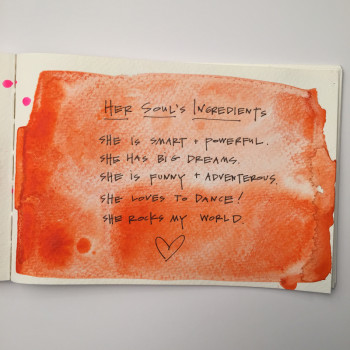 HER SOUL'S INGREDIENTS
SHE IS SMART + POWERFUL.
SHE HAS BIG DREAMS.
SHE IS FUNNY + ADVENTEROUS.
SHE LOVES TO DANCE!
SHE ROCKS MY WORLD.